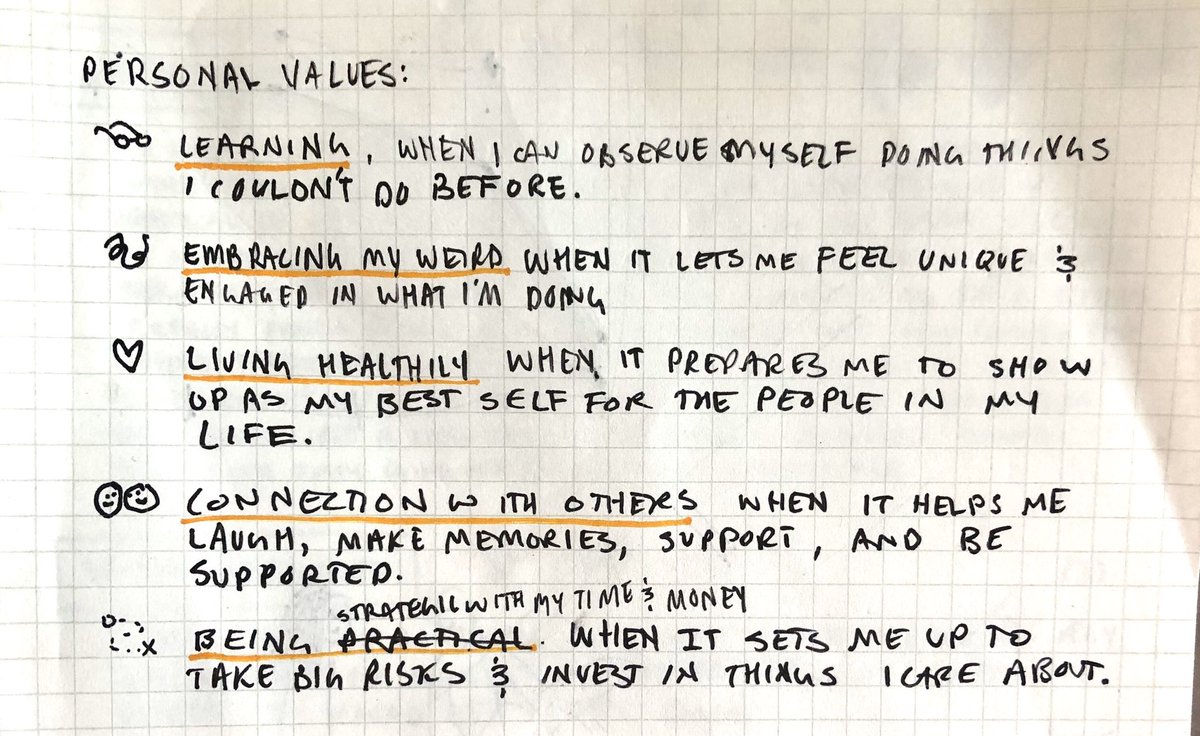 PERSONAL VALUES:
LEARNING, WHEN I CAN OBSERVE MYSELF DOING THINGS
I COULDN'T DO BEFORE.
EMBRACING MY WEIRD WHEN IT LETS ME FEEL UNIQUE &
ENGAGED IN WHAT I'M DOING
LIVING HEALTHILY WHEN IT PREPARES ME TO SHOW
UP AS MY BEST SELF FOR THE PEOPLE IN MY
LIFE.
CONNECTION WITH OTHERS WHEN IT HELPS ME
LAUGH, MAKE MEMORIES, SUPPORT, AND BE
SUPPORTED.
STRATEGIC WITH MY TIME & MONEY
BEING PRACTICAL. WHEN IT SETS ME UP TO
TAKE BIG RISKS & INVEST IN THINGS I CARE ABOUT.